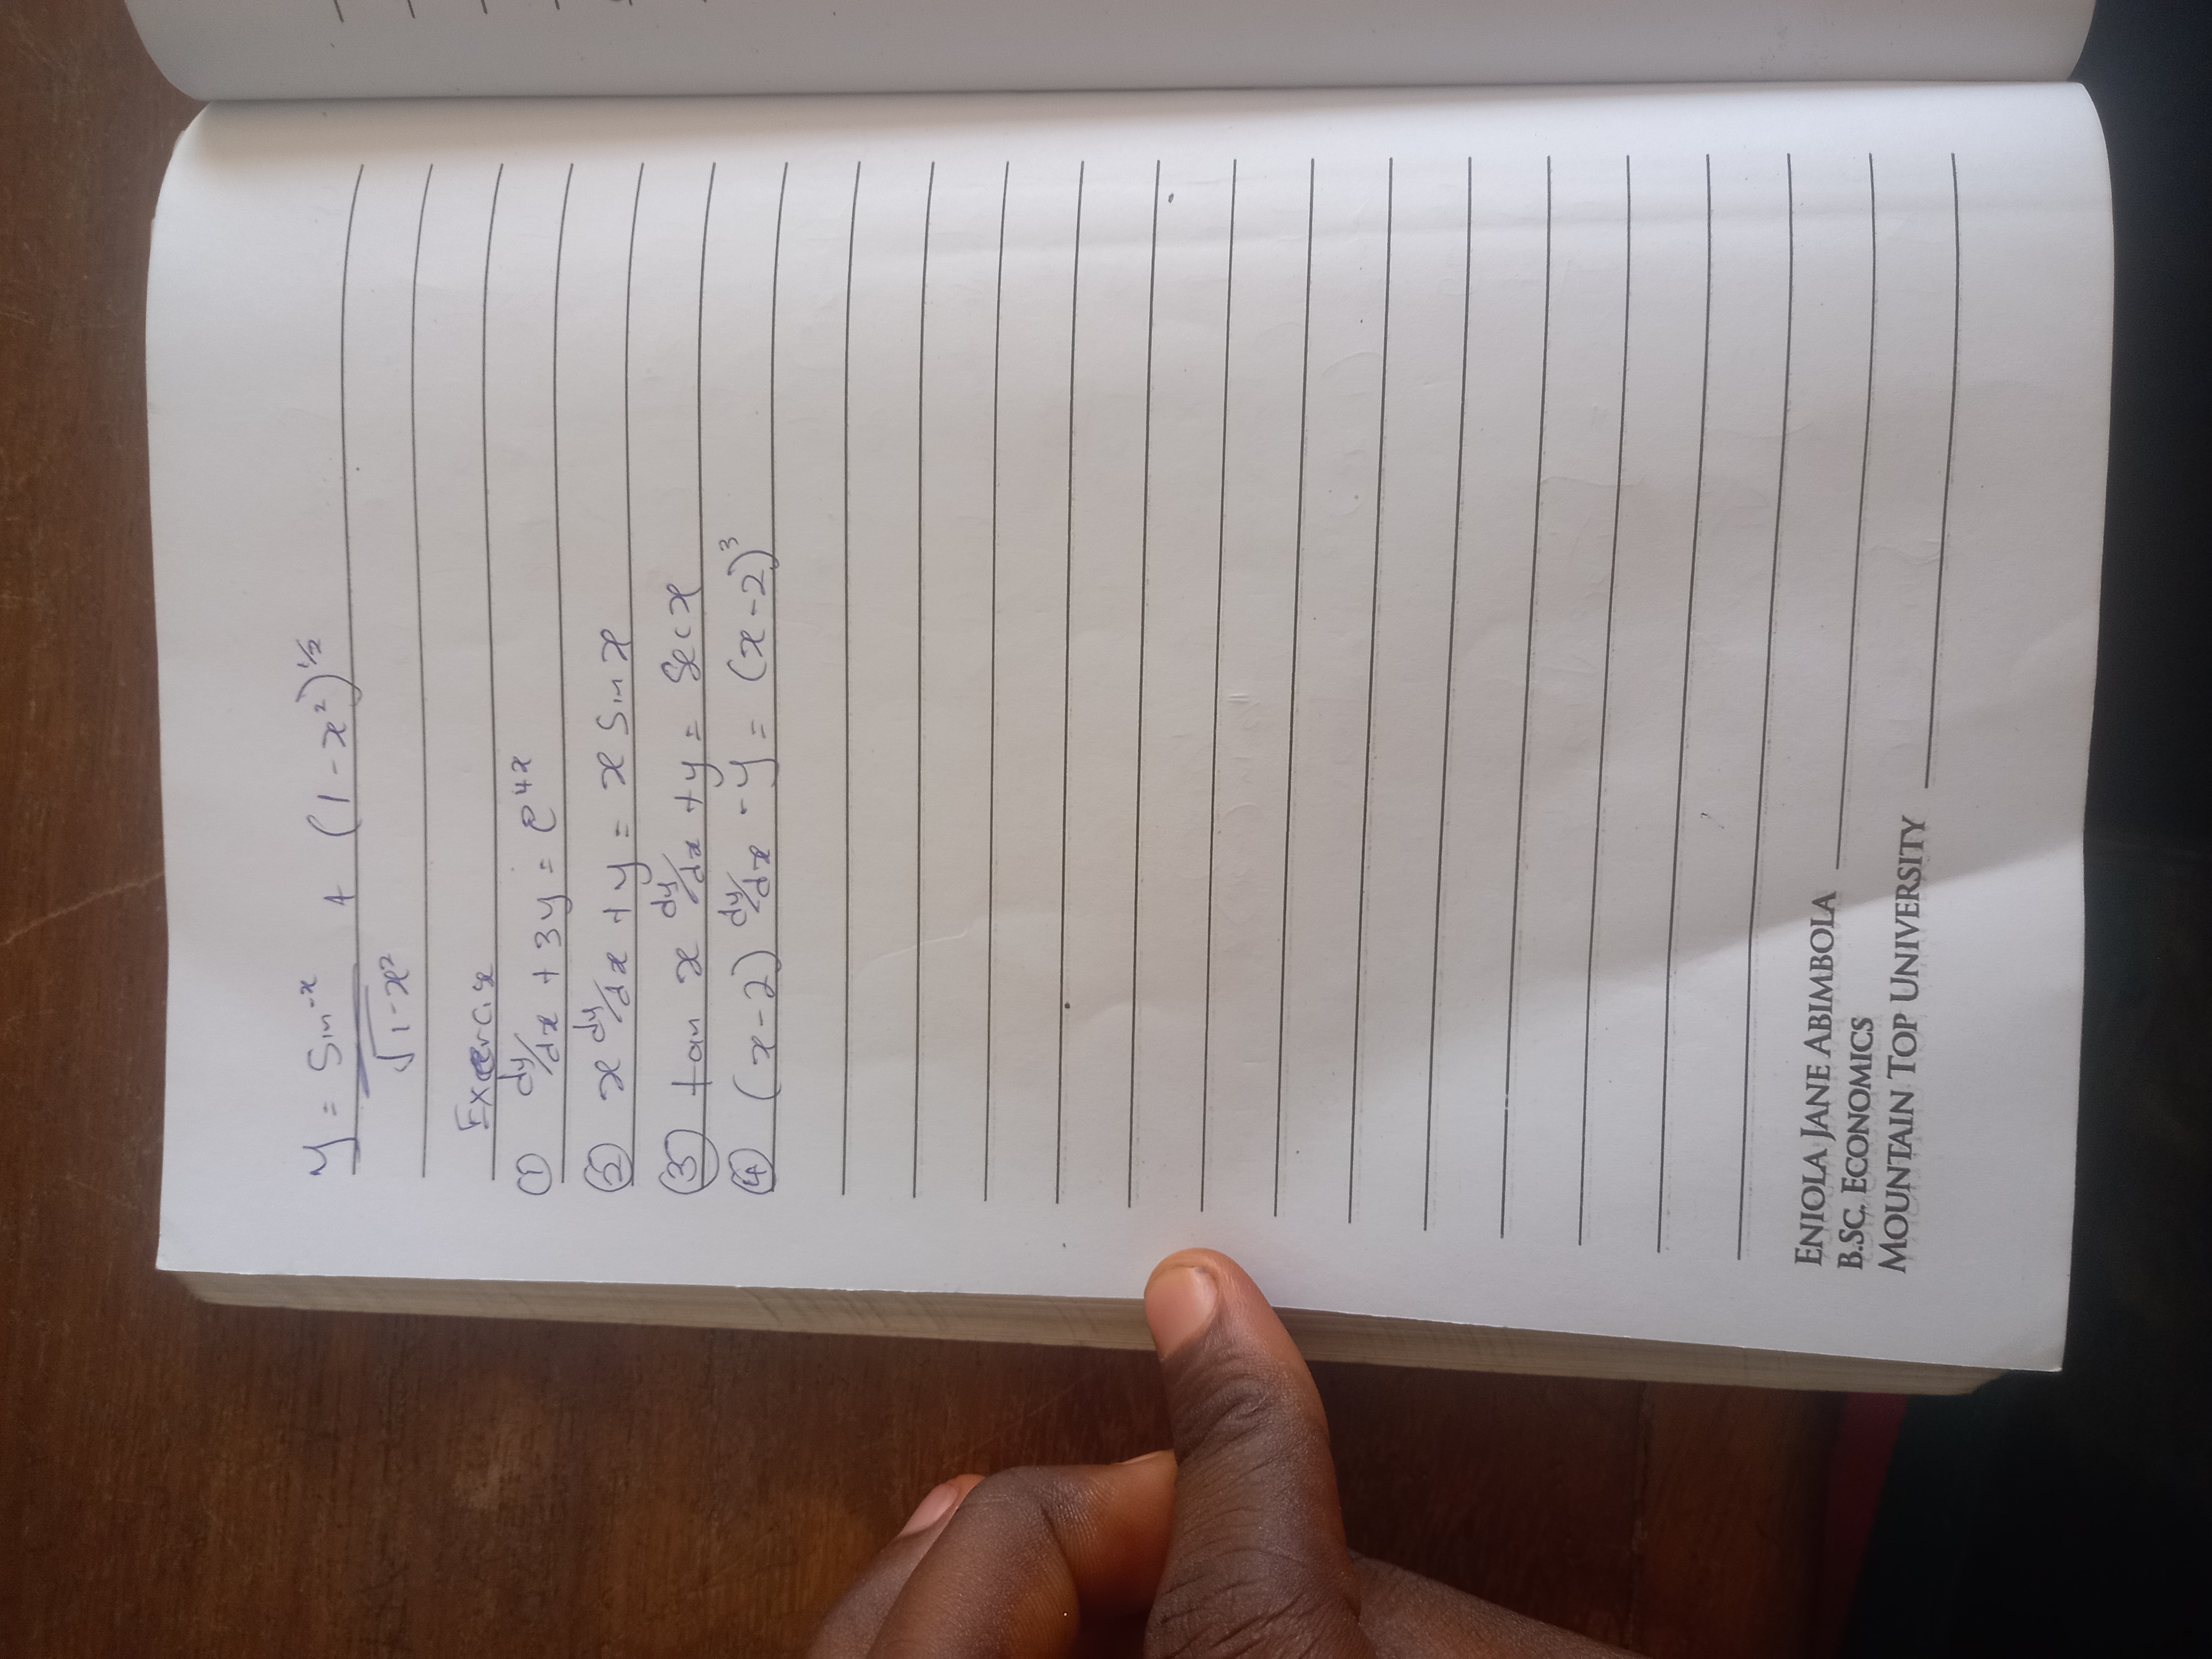 y = Sin⁻ˣ + (1-x²)^1/2
√1-x²
Exercise
① dy/dx + 3y = e⁴ˣ
② x dy/dx + y = x Sin x
③ tan x dy/dx + y = Sec x
④ (x-2) dy/dx - y = (x-2)³
ENIOLA JANE ABIMBOLA
B.SC. ECONOMICS
MOUNTAIN TOP UNIVERSITY